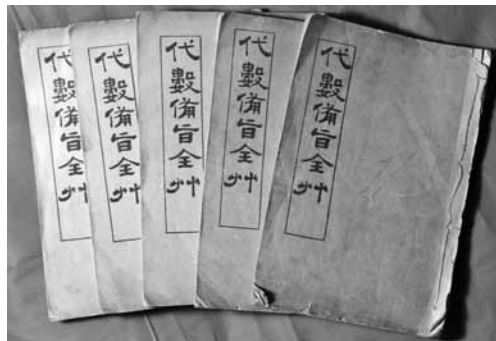 代數備旨全艸
代數備旨全艸
代數備旨全艸
代數備旨全艸
代數備旨全艸